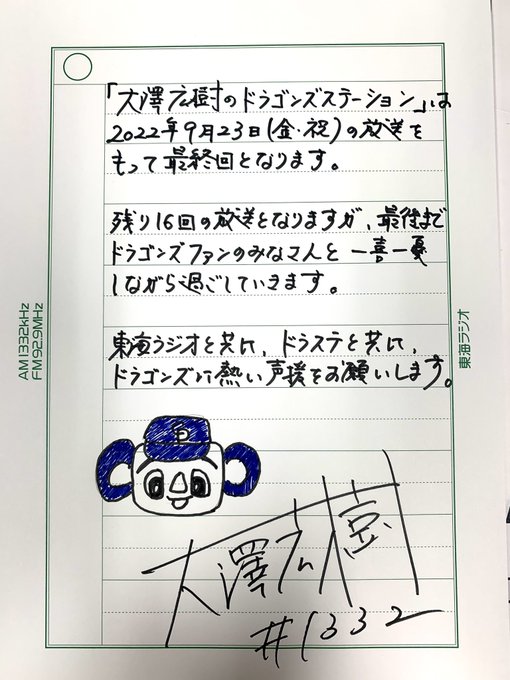 「大澤広樹のドラゴンズステーション」は
2022年9月23日(金・祝)の放送を
もって最終回となります。
残り16回の放送となりますが、最後まで
ドラゴンズファンのみなさんと一喜一憂
しながら過ごしていきます。
東海ラジオと共に、ドラステと共に、
ドラゴンズに熱い声援をお願いします。
D
大澤広樹
#1332
AM1332kHz
FM92.9MHz
東海ラジオ